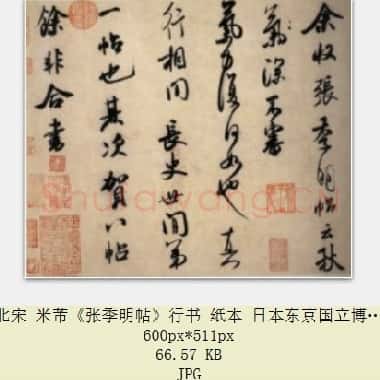 余收張季明帖云秋
氣深不審
氣力復何如也真
行相間長史世間第
一帖也其次賀八帖
餘非合書
北宋 米芾《张季明帖》行书 纸本 日本东京国立博···
600px*511px
66.57 KB
JPG